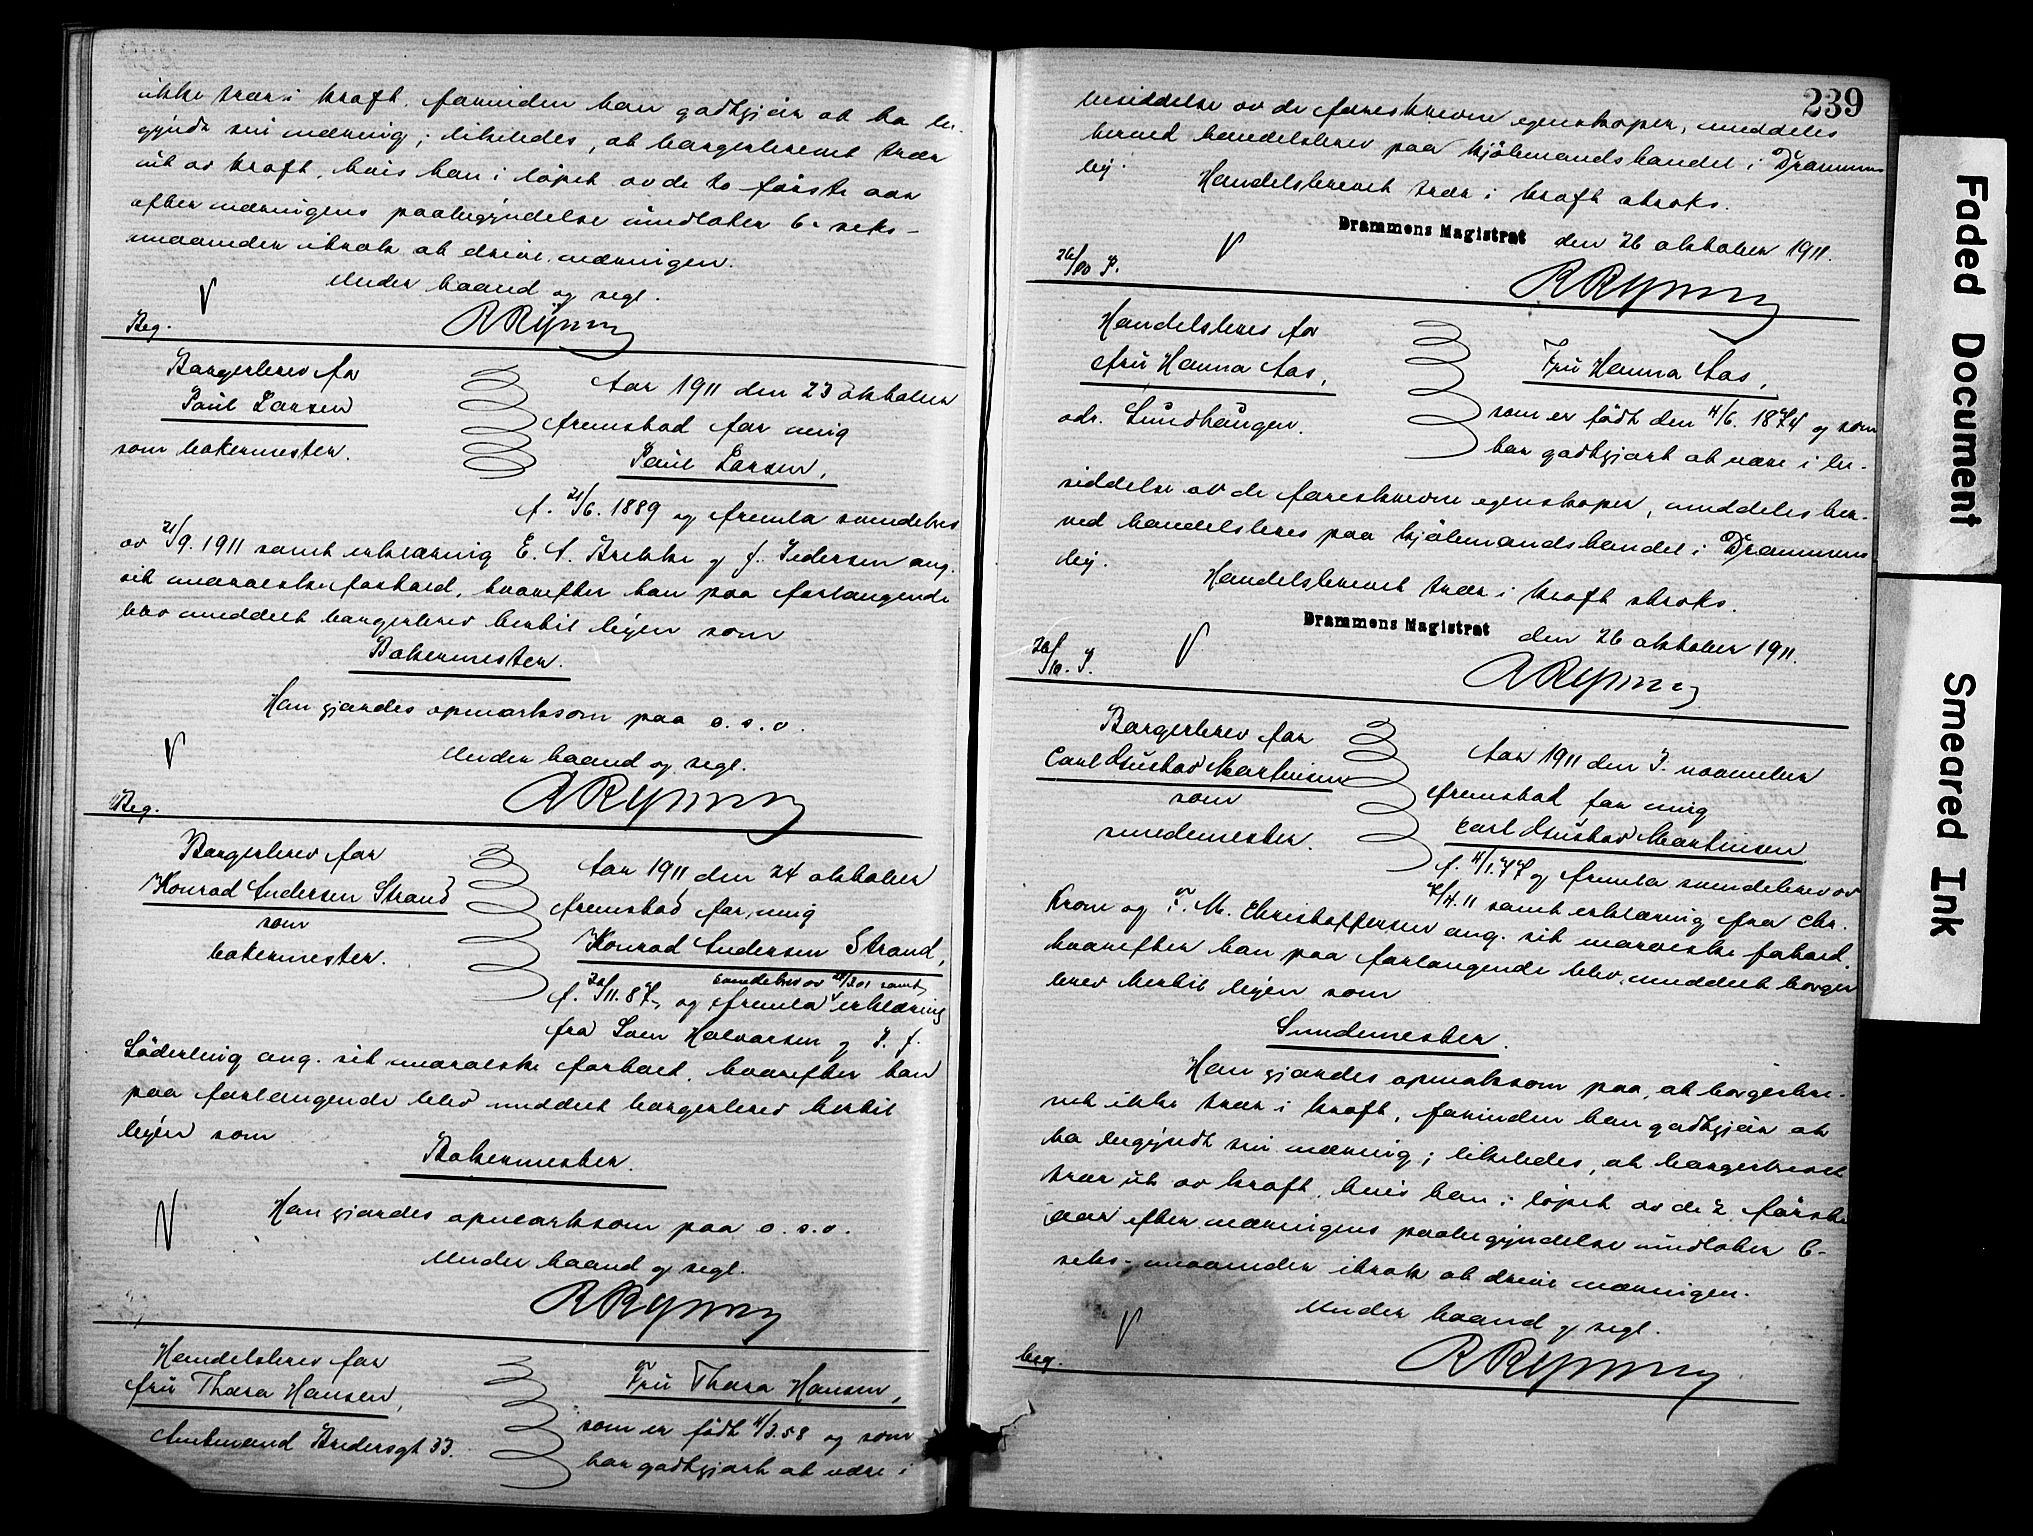 ikke trær i kraft, forinden han godtgjør at ha be-
gyndt sin næring; likeledes, at borgerbrevet trær
ut av kraft, hvis han i løpet av de to første aar
efter næringens paabegyndelse undlater 6 - seks -
maaneder itræk at drive næringen.
Under haand og segl.
V
Beg.
Borgerbrev for
Paul Larsen
som bakermester.
Aar 1911 den 23 oktober
fremstod for mig
Paul Larsen,
f. 21/6. 1889 og fremla svendebrev
av 21/9. 1911 samt erklæring E. A. Brekke og J. Pedersen ang.
sit moralske forhold, hvorefter han paa forlangende
blev meddelt borgerbrev hertil byen som
Bakermester.
Han gjordes opmerksom paa o. s. v.
Under haand og segl.
V
Beg.
Borgerbrev for
Konrad Andersen Strand
som
bakermester.
Aar 1911 den 24 oktober
fremstod for mig
Konrad Andersen Strand,
svendebrev av samt
f. 11.87, og fremla erklæring
fra Sven Halvorsen og P. J.
Söderling ang. sit moralske forhold, hvorefter han
paa forlangende blev meddelt borgerbrev hertil
byen som
Bakermester.
Han gjordes opmerksom paa o. s. v.
V
Under haand og segl.
Handelsbrev for
fru Thora Hansen,
Amtmand Bredersgt 33.
Fru Thora Hansen,
som er født 4/3.58 og som
har godtgjort at være i
239
besiddelse av de foreskrevne egenskaper, meddeles
herved handelsbrev paa kjøbmandshandel i Drammens
by.
Handelsbrevet trær i kraft straks.
Drammens Magistrat den 26 oktober 1911.
26/10 P.
V
Handelsbrev for
fru Hanna Aas,
adr. Sundhaugen.
Fru Hanna Aas,
som er født den 4/6. 1874 og som
har godtgjort at være i be-
siddelse av de foreskrevne egenskaper, meddeles her-
ved handelsbrev paa kjøbmandshandel i Drammens
by.
Handelsbrevet trær i kraft straks.
Drammens Magistrat den 26 oktober 1911.
26/10. P.
V
Borgerbrev for
Carl Gustav Martinsen
som
smedemester.
Aar 1911 den 3. november
fremstod for mig
Carl Gustav Martinsen
f. 4/1.77 og fremla svendebrev av
7/4.11 samt erklæring fra Chr.
Krom og F. M. Christoffersen ang. sit moralske forhold,
hvorefter han paa forlangende blev meddelt borger
brev hertil byen som
Smedemester.
Han gjordes opmerksom paa, at borgerbre-
vet ikke trær i kraft, forinden han godtgjør at
ha begyndt sin næring; likeledes, at borgerbrevet
trær ut av kraft, hvis han i løpet av de 2 første
aar efter næringens paabegyndelse undlater 6 -
seks - maaneder itræk at drive næringen.
Under haand og segl.
V
Beg.
Faded Document
Smeared Ink